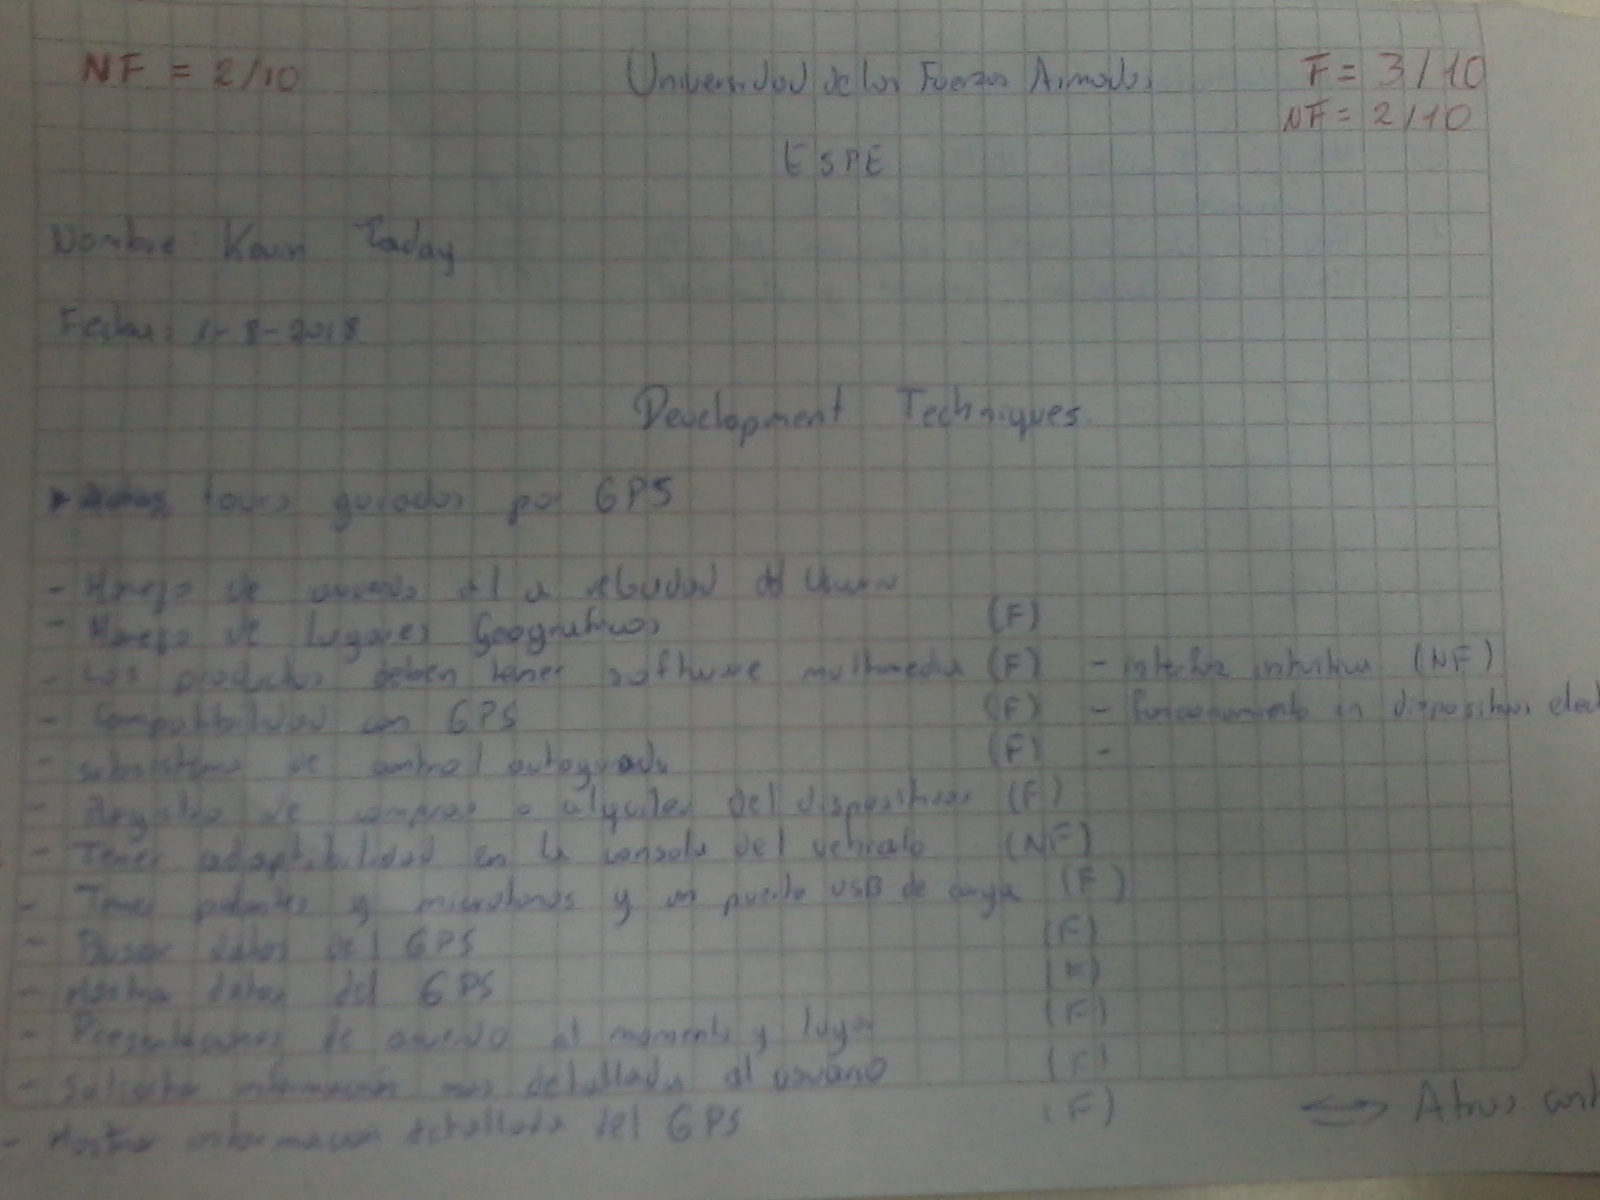 NF = 2/10 Universidad de las Fuerzas Armadas F = 3/10
NF = 2/10
ESPE
Nombre: Kevin Taday
Fecha: 1-8-2018
Development Techniques
tours guiados por GPS
- Manejo de acuerdo al a velocidad del usuario
- Manejo de lugares Geograficos (F)
- Los productos deben tener software multimedia (F) - interfaz intuitiva (NF)
- Compatibilidad con GPS (F) - funcionamiento en dispositivos elect
- subsistema de control autoguiado (F) -
- Registro de compras o alquiler del dispositivos (F)
- Tener adaptabilidad en la consola del vehiculo (NF)
- Tener parlantes y microfonos y un puerto USB de carga (F)
- Buscar datos del GPS (F)
- Mostrar datos del GPS (F)
- Presentaciones de acuerdo al momento y lugar (F)
- Solicitar información mas detallada al usuario (F)
- Mostrar informacion detallada del GPS (F) Atras